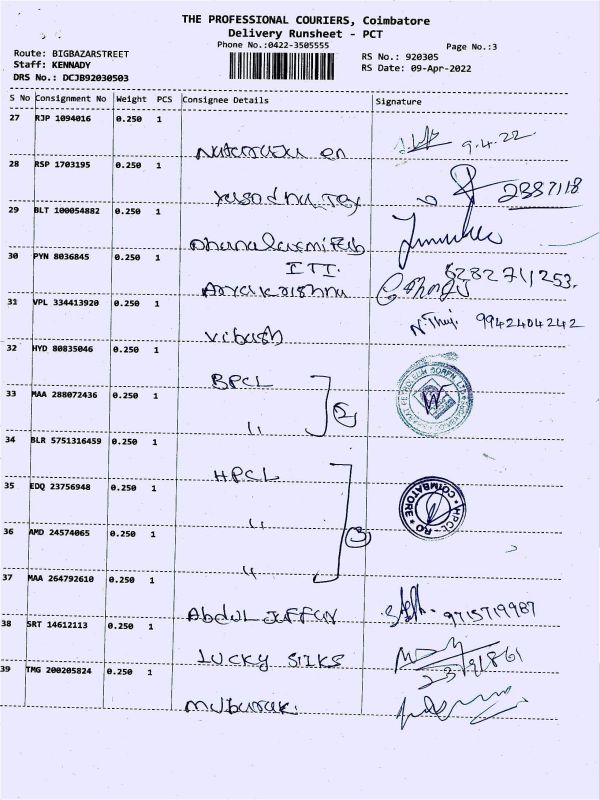 THE PROFESSIONAL COURIERS, Coimbatore
Delivery Runsheet - PCT
Phone No.:0422-3505555
Page No.:3
Route: BIGBAZARSTREET
Staff: KENNADY
DRS No.: DCJB92030503
RS No.: 920305
RS Date: 09-Apr-2022
S No Consignment No Weight PCS Consignee Details Signature
27 RJP 1094016 0.250 1
9.4.22
28 RSP 1703195 0.250 1
2387118
29 BLT 100054882 0.250 1
ITI.
30 PYN 8036845 0.250 1
6282711253.
31 VPL 334413920 0.250 1
vibash
9942404242
32 HYD 80835046 0.250 1
BPCL
33 MAA 288072436 0.250 1
" 2
34 BLR 5751316459 0.250 1
HPCL
35 EDQ 23756948 0.250 1
"
COIMBATORE
HPCL-RO
36 AMD 24574065 0.250 1
" 3
37 MAA 264792610 0.250 1
Abdul Jaffur 9715719987
38 SRT 14612113 0.250 1
LUCKY SILKS
2391861
39 TMG 200205824 0.250 1
Mubarak.